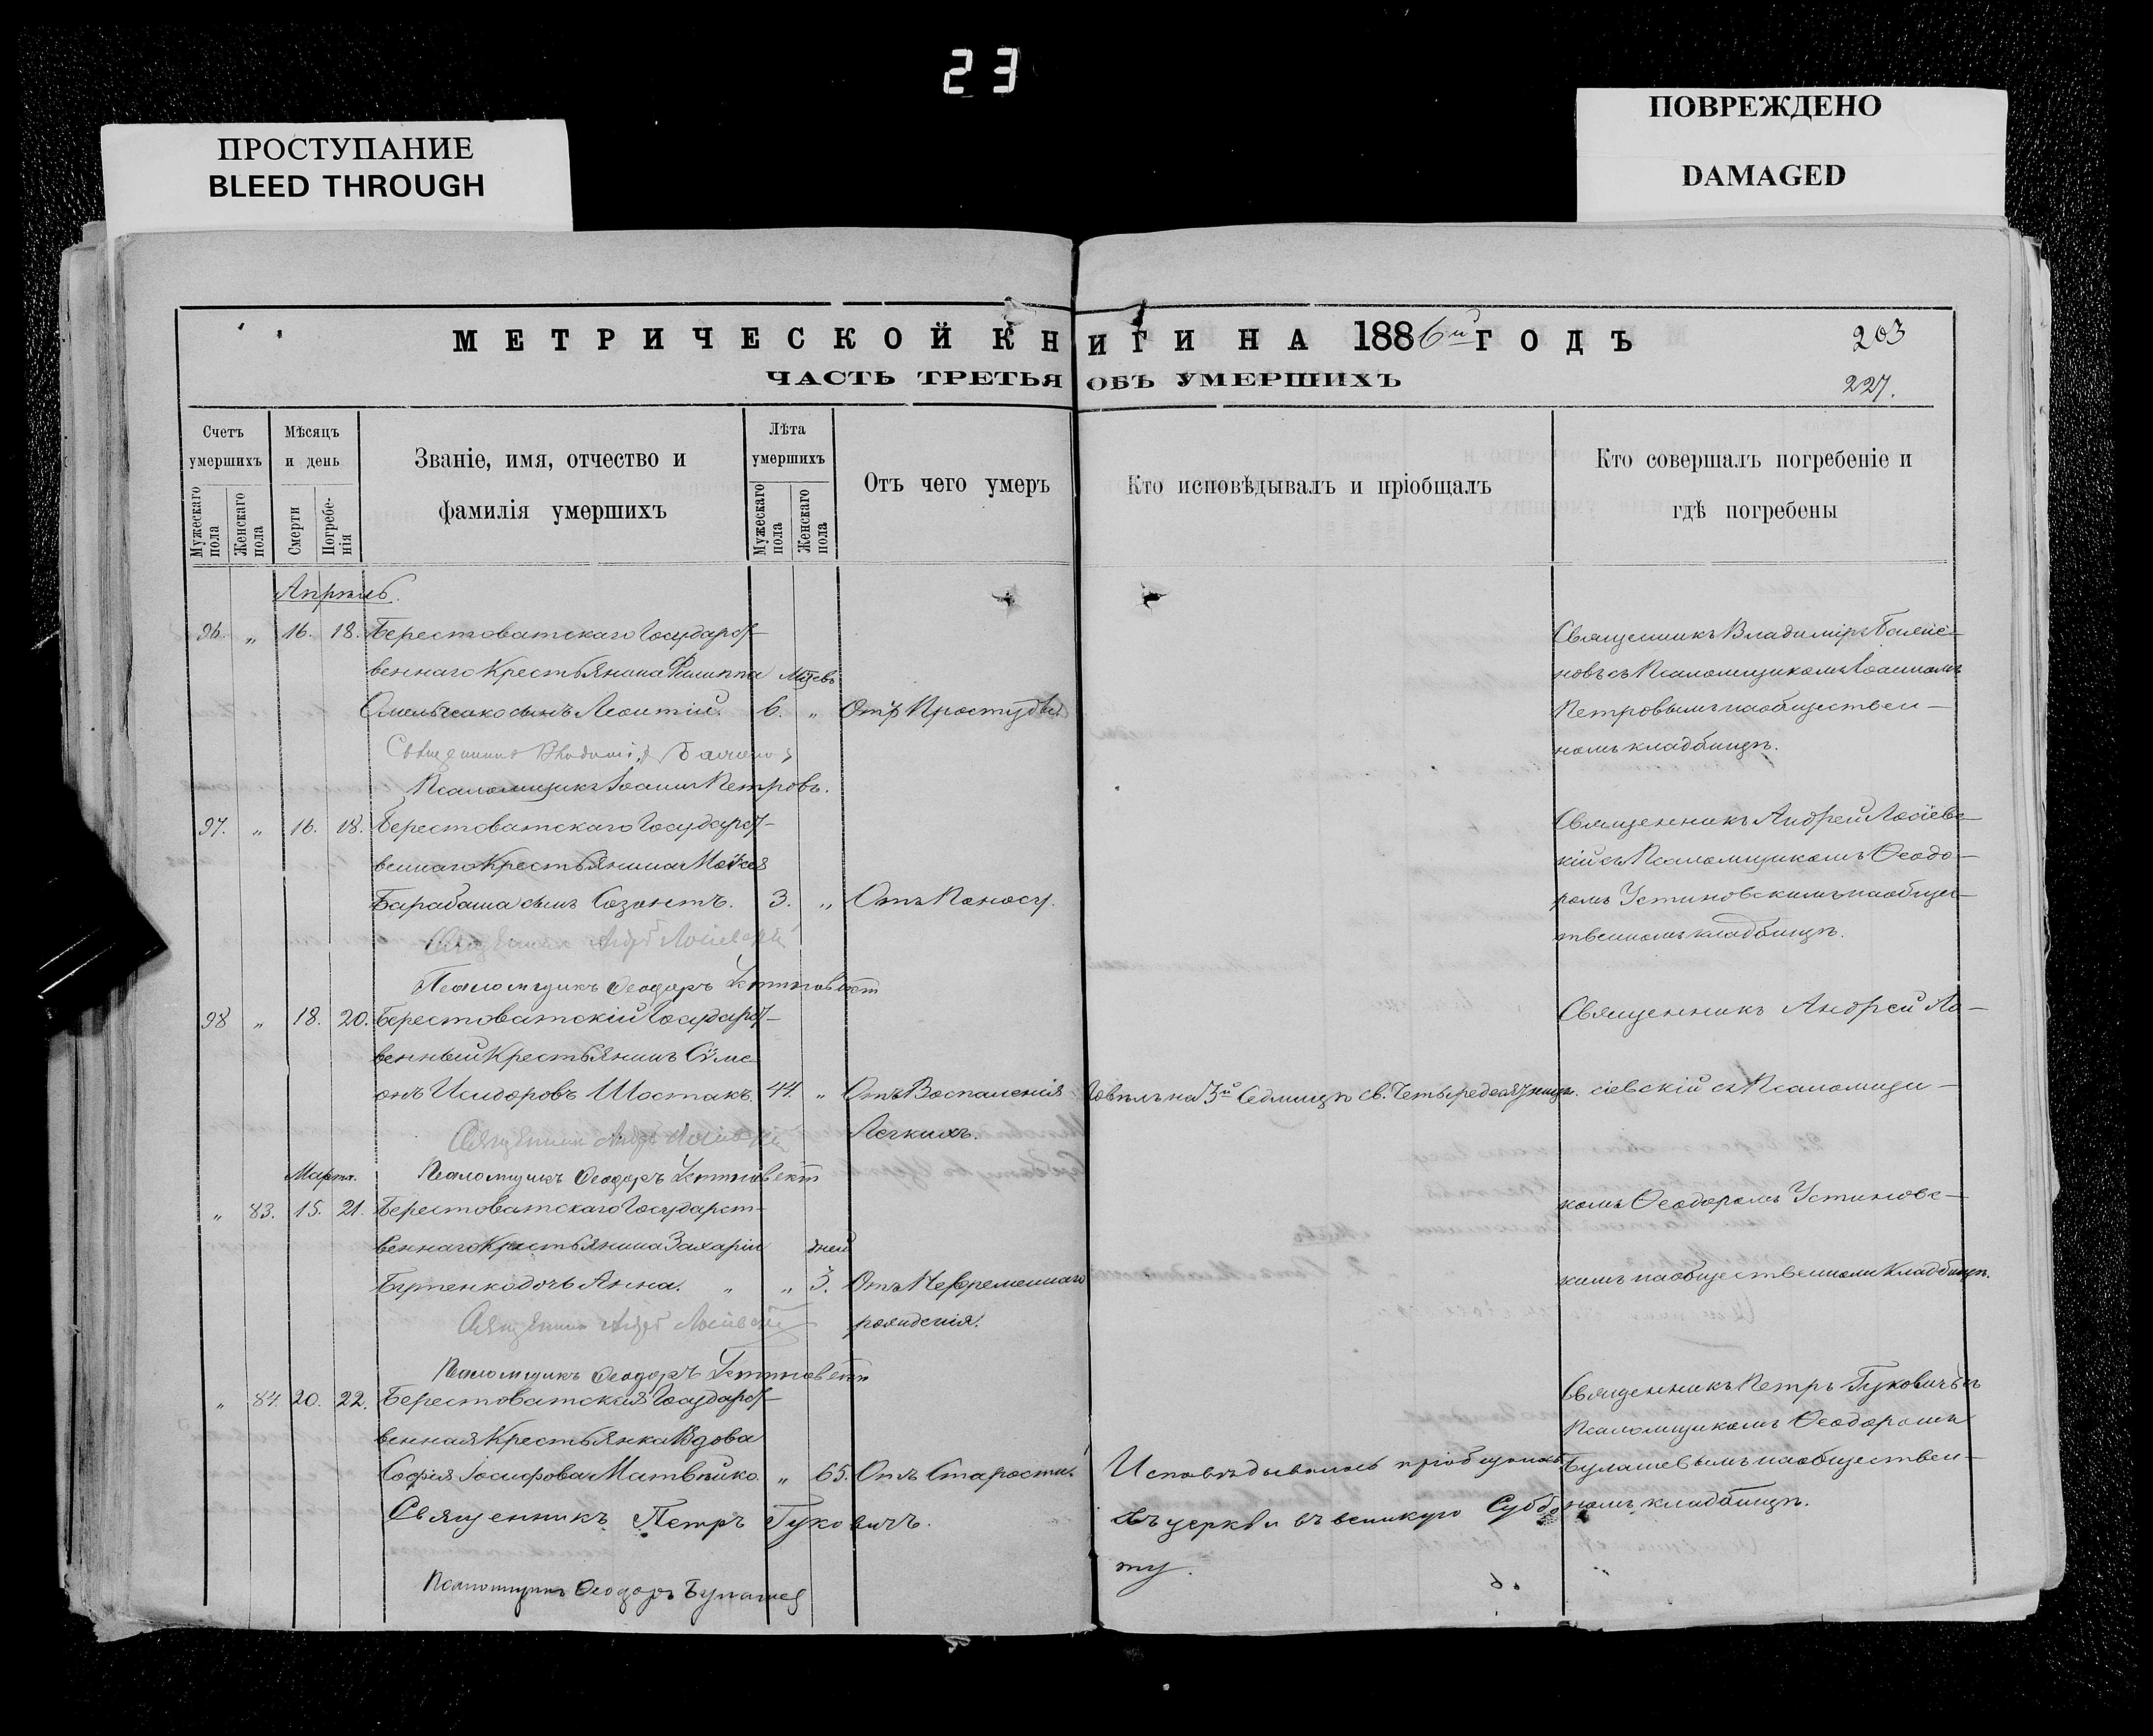 23
ПРОСТУПАНИЕ
BLEED THROUGH
ПОВРЕЖДЕНО
DAMAGED
МЕТРИЧЕСКОЙ КНИГИ НА 1886й ГОДЪ
203
ЧАСТЬ ТРЕТЬЯ ОБЪ УМЕРШИХЪ
227.
Счетъ умершихъ
Мужескаго пола
Женскаго пола
Мѣсяцъ и день
Смерти
Погребенія
Званіе, имя, отчество и
фамилія умершихъ
Лѣта умершихъ
Мужескаго пола
Женскаго пола
Отъ чего умеръ
Кто исповѣдывалъ и пріобщалъ
Кто совершалъ погребеніе и
гдѣ погребены
Апрѣль.
96. „ 16. 18. Берестоватскаго Государст-
веннаго Крестьянина Филиппа Мѣсяцевъ
Омельченко сынъ Леонтій. 6. „ Отъ Простуды.
Священникъ Владимі
Псаломщикъ Іоаннъ Петровъ.
Священникъ Владиміръ
новъ съ Псаломщикомъ Іоанномъ
Петровымъ на обществен-
номъ кладбищѣ.
97. „ 16. 18. Берестоватскаго Государст-
веннаго Крестьянина Моѵсея
Барабаша сынъ Созонтъ. 3. „ Отъ Поносу.
Священникъ Андрей Лосіевскій
Псаломщикъ Ѳеодоръ Устиновскій
Священникъ Андрей Лосіевс-
кій съ Псаломщикомъ Ѳеодо-
ромъ Устиновскимъ на общес-
твенномъ кладбищѣ.
98 „ 18. 20. Берестоватскій Государст-
венный Крестьянинъ Сѵме-
онъ Исидоровъ Шостакъ. 44. „ Отъ Воспаленія
Легкихъ.
Священникъ Андрей Лосіевскій
Псаломщикъ Ѳеодоръ Устиновскій
Говѣлъ на 3й Седмицѣ св. Четыредесятницы.
Священникъ Андрей Ло-
сіевскій съ Псаломщи-
комъ Ѳеодоромъ Устиновс-
кимъ на общественномъ кладбищѣ.
Марта.
„ 83. 15. 21. Берестоватскаго Государст-
веннаго Крестьянина Захаріи дней
дочь Анна. „ „ 3. Отъ Невременнаго
рожденія.
Священникъ Андрей Лосіевскій
Псаломщикъ Ѳеодоръ Устиновскій
„ 84. 20. 22. Берестоватская Государст-
венная Крестьянка Вдова
Софія Іосифова Матвѣйко. „ 65. Отъ Старости.
Священникъ Петръ Гуковичъ.
Псаломщикъ Ѳеодоръ Булашев
Исповѣдывалась пріобщалась
въ церкви въ великую Суббо
ту.
Священникъ Петръ Гуковичъ съ
Псаломщикомъ Ѳеодоромъ
Булашевымъ на обществен-
номъ кладбищѣ.